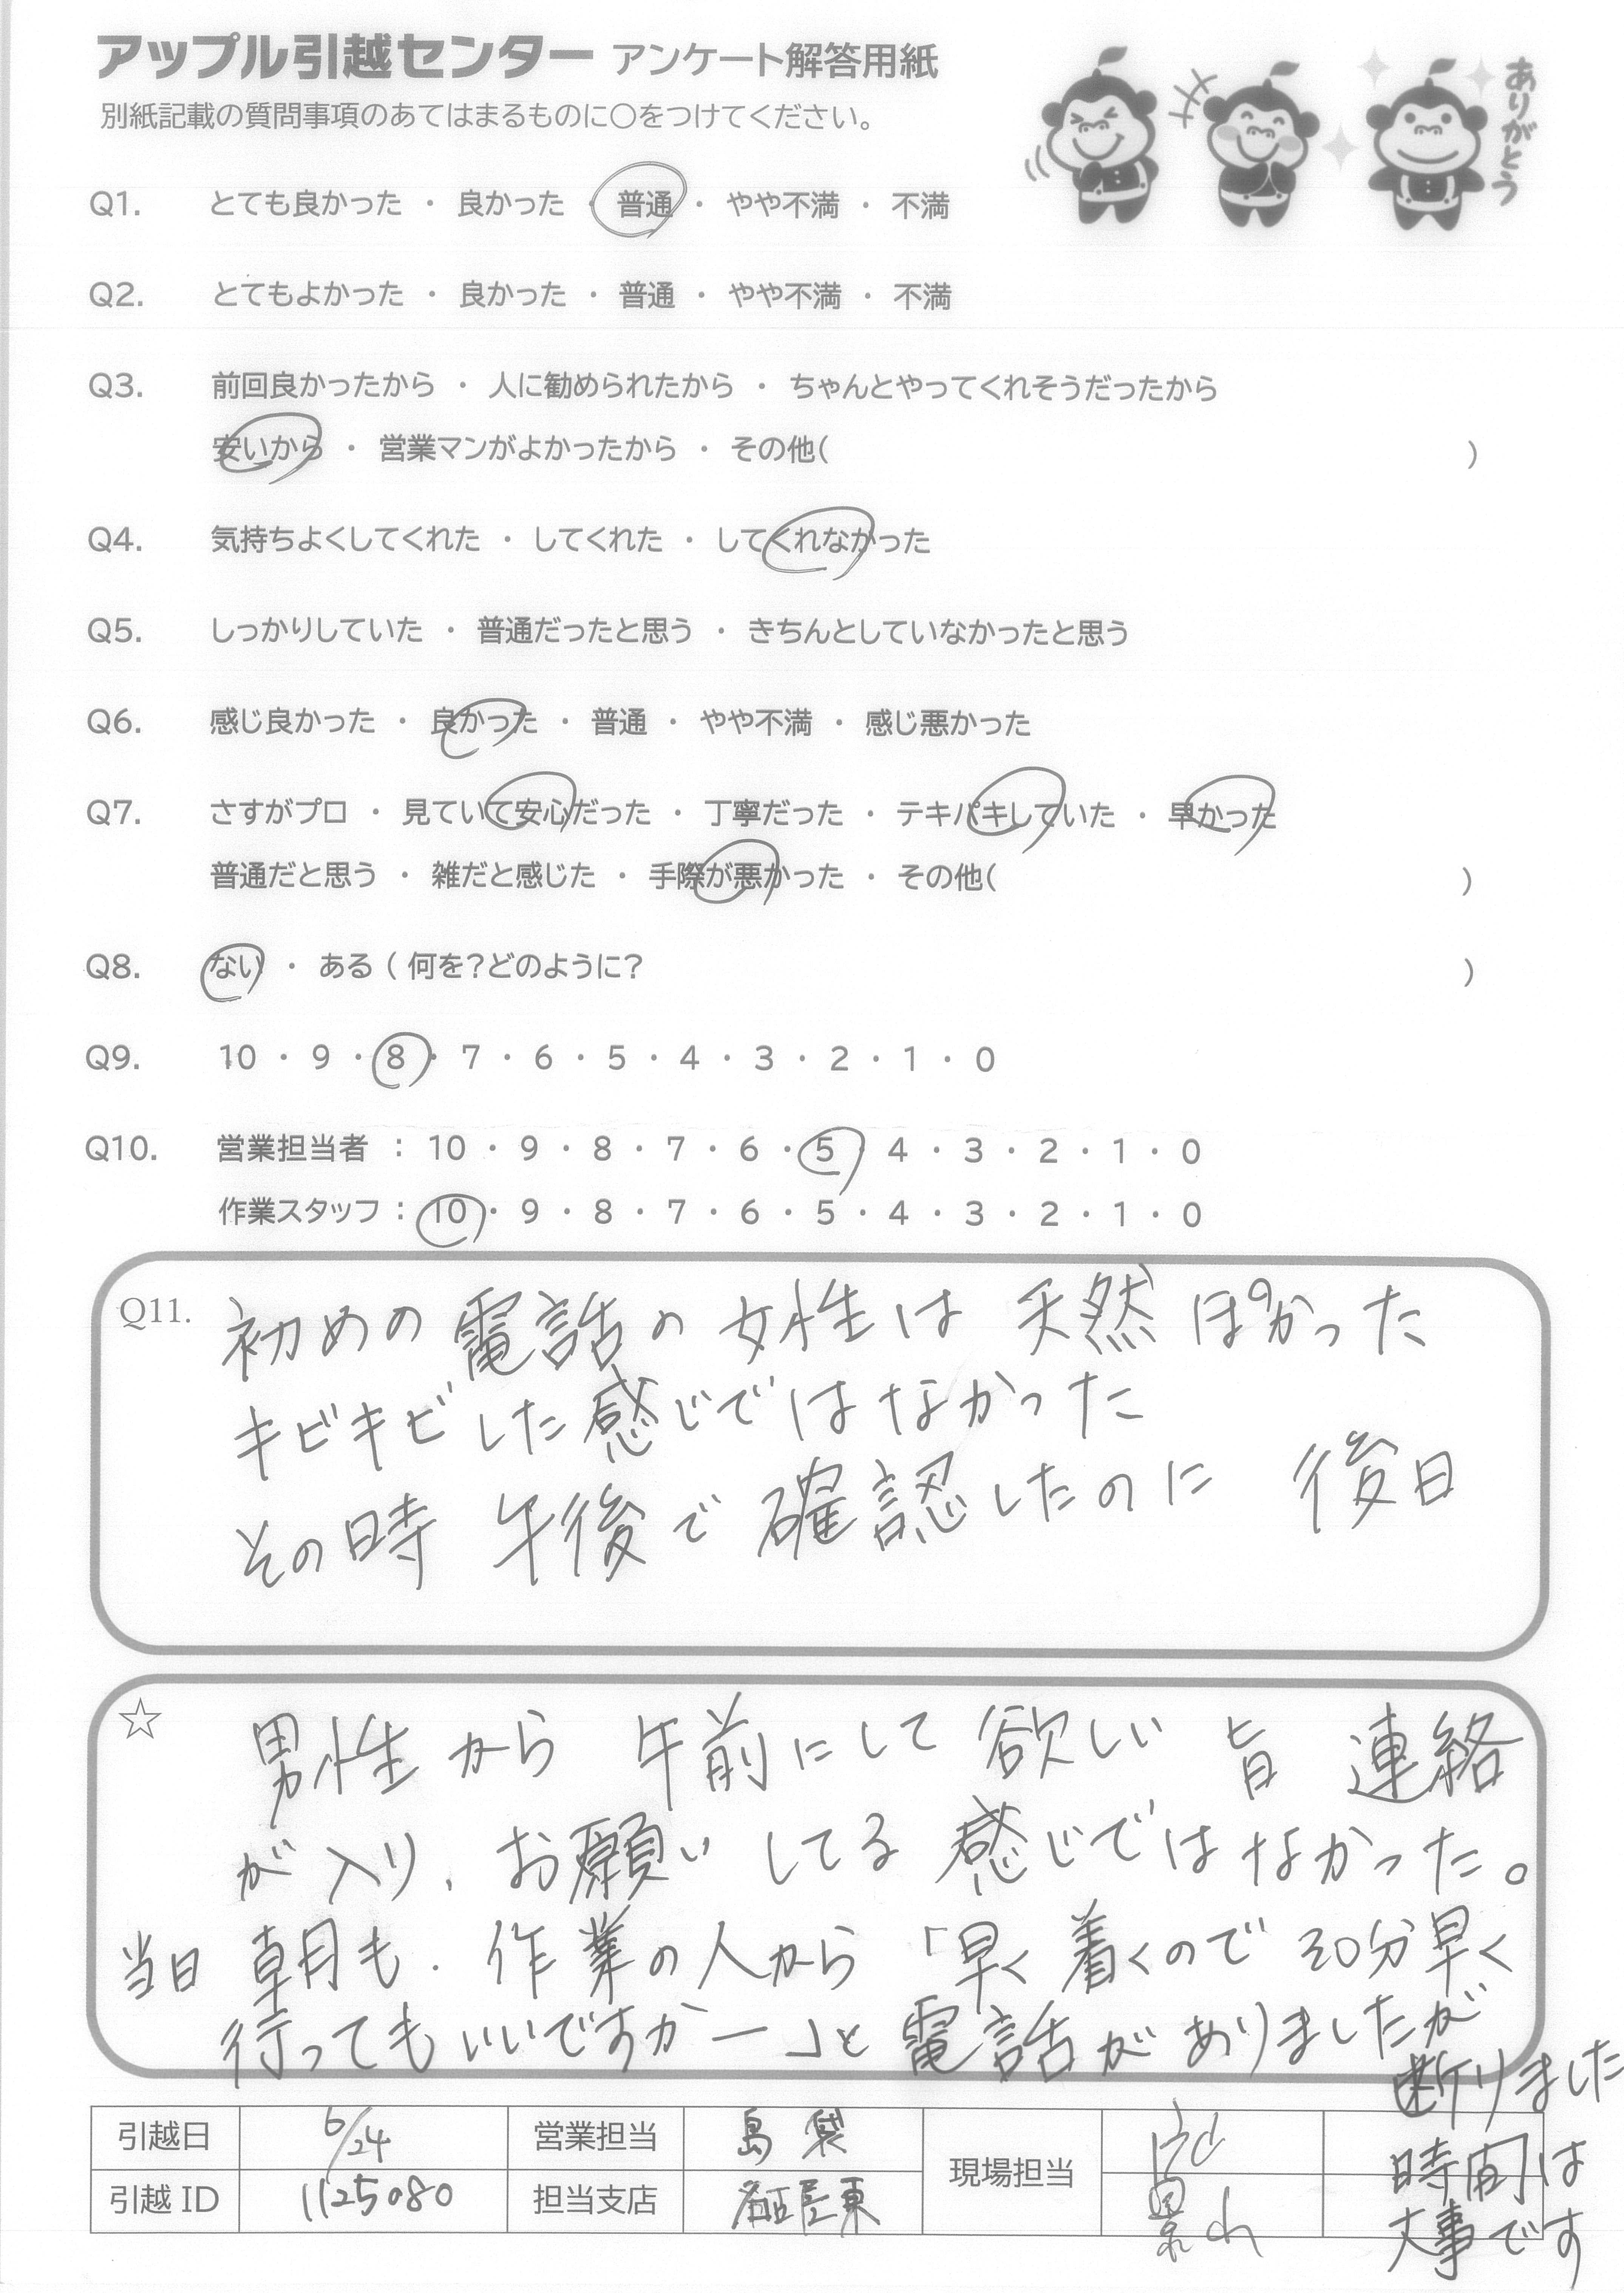 アップル引越センター アンケート解答用紙
ありがとう
別紙記載の質問事項のあてはまるものに○をつけてください。
Q1. とても良かった ・ 良かった ・ 普通 ・ やや不満 ・ 不満
Q2. とてもよかった ・ 良かった ・ 普通 ・ やや不満 ・ 不満
Q3. 前回良かったから ・ 人に勧められたから ・ ちゃんとやってくれそうだったから
安いから ・ 営業マンがよかったから ・ その他( )
Q4. 気持ちよくしてくれた ・ してくれた ・ してくれなかった
Q5. しっかりしていた ・ 普通だったと思う ・ きちんとしていなかったと思う
Q6. 感じ良かった ・ 良かった ・ 普通 ・ やや不満 ・ 感じ悪かった
Q7. さすがプロ ・ 見ていて安心だった ・ 丁寧だった ・ テキパキしていた ・ 早かった
普通だと思う ・ 雑だと感じた ・ 手際が悪かった ・ その他( )
Q8. ない ・ ある ( 何を?どのように? )
Q9. 10 ・ 9 ・ 8 ・ 7 ・ 6 ・ 5 ・ 4 ・ 3 ・ 2 ・ 1 ・ 0
Q10. 営業担当者 : 10 ・ 9 ・ 8 ・ 7 ・ 6 ・ 5 ・ 4 ・ 3 ・ 2 ・ 1 ・ 0
作業スタッフ : 10 ・ 9 ・ 8 ・ 7 ・ 6 ・ 5 ・ 4 ・ 3 ・ 2 ・ 1 ・ 0
Q11. 初めの電話の女性は天然ぽかった
キビキビした感じではなかった
その時 午後で確認したのに 後日
☆ 男性から 午前にして欲しい 旨 連絡
が入り、お願いしてる感じではなかった。
当日 朝も、作業の人から「早く着くので30分早く
行ってもいいですかー」と電話がありましたが
断りました
時間は
大事です
引越日 6/24 営業担当 現場担当
引越ID 1125080 担当支店 名古屋東